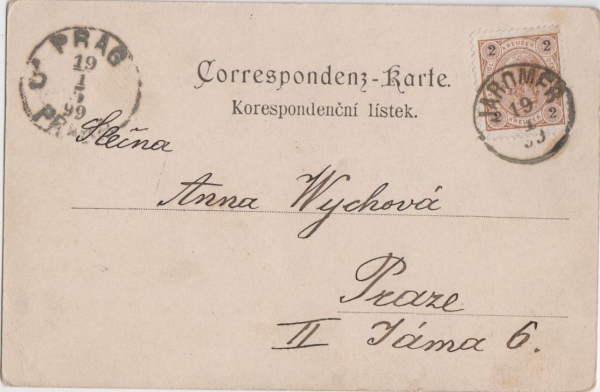 PRAG
19
1
5
99
Correspondenz-Karte.
Korespondenční lístek.
2 KREUZER 2
2 KREUZER 2
JAROMĚŘ
19
1
99
Slečna
Anna Wychová
Praze
II Jáma 6.